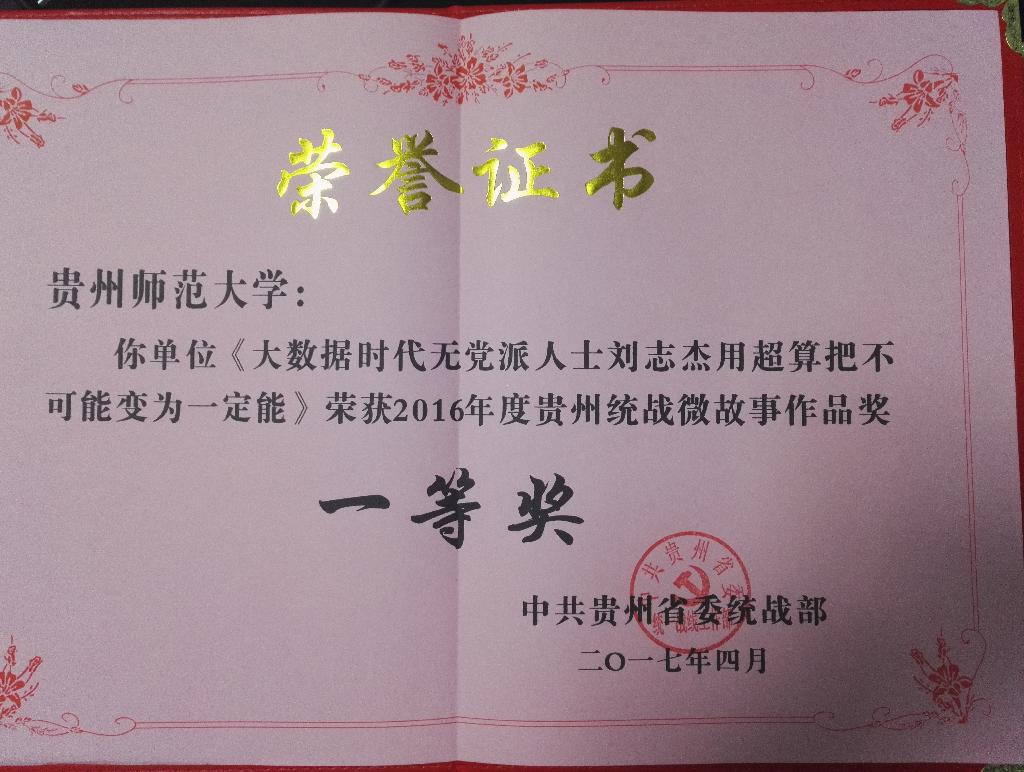 荣誉证书
贵州师范大学：
你单位《大数据时代无党派人士刘志杰用超算把不
可能变为一定能》荣获2016年度贵州统战微故事作品奖
一等奖
中共贵州省委
统一战线工作部
中共贵州省委统战部
二〇一七年四月